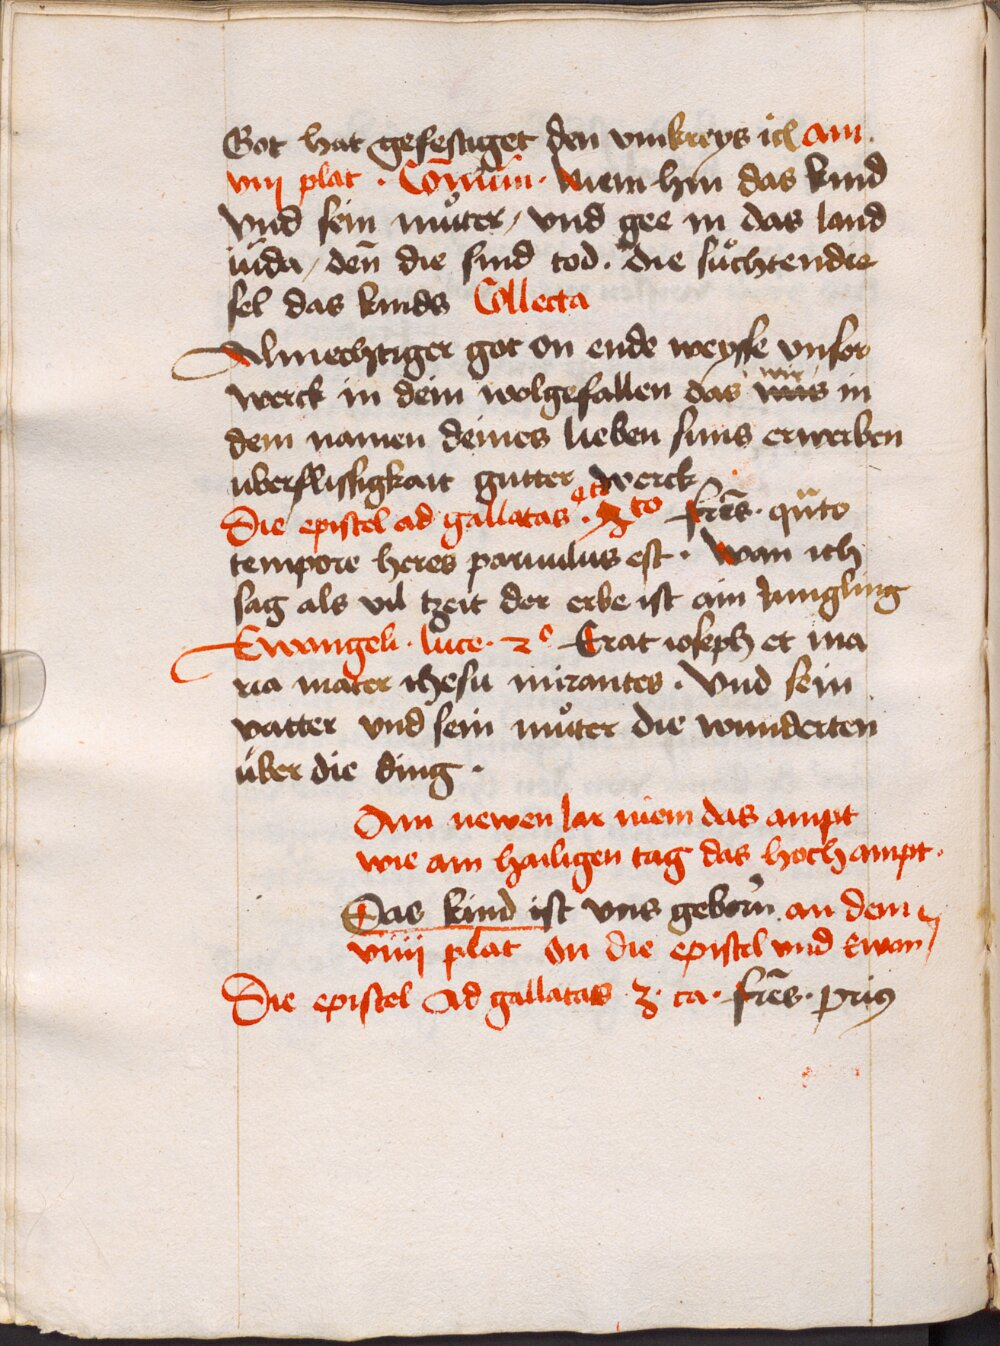 Got hat gefestiget den vmkreys ich am
viij plat . Cōmūm . Niem hin das kind
vnd sein můter / vnd gee in das land
iuda / den̄ die sind tod . die sůchten die
sel das kinds Collecta
Almechtiger got on ende weysse vnser
werck in dem wolgefallen das wir in
dem namen deines lieben suns erwerben
uberflissigkait gutter werck
Die epistel ad gallatas . 4to fr̄es . qūto
tempore heres paruulus est . Wan ich
sag als vil tzeit der erbe ist ain Jungling
Ewangeli . luce . 2º Erat ioseph et ma
ria mater ihesu mirantes . Vnd sein
vatter vnd sein můter die wunderten
über die ding .
Am newen Jar niem das ampt
wie am hailigen tag das hochampt .
Das kind ist vns geborn an dem
viiij plat on die epistel vnd Ewan
Die epistel Ad gallatas 3 . ca . fr̄es . prius